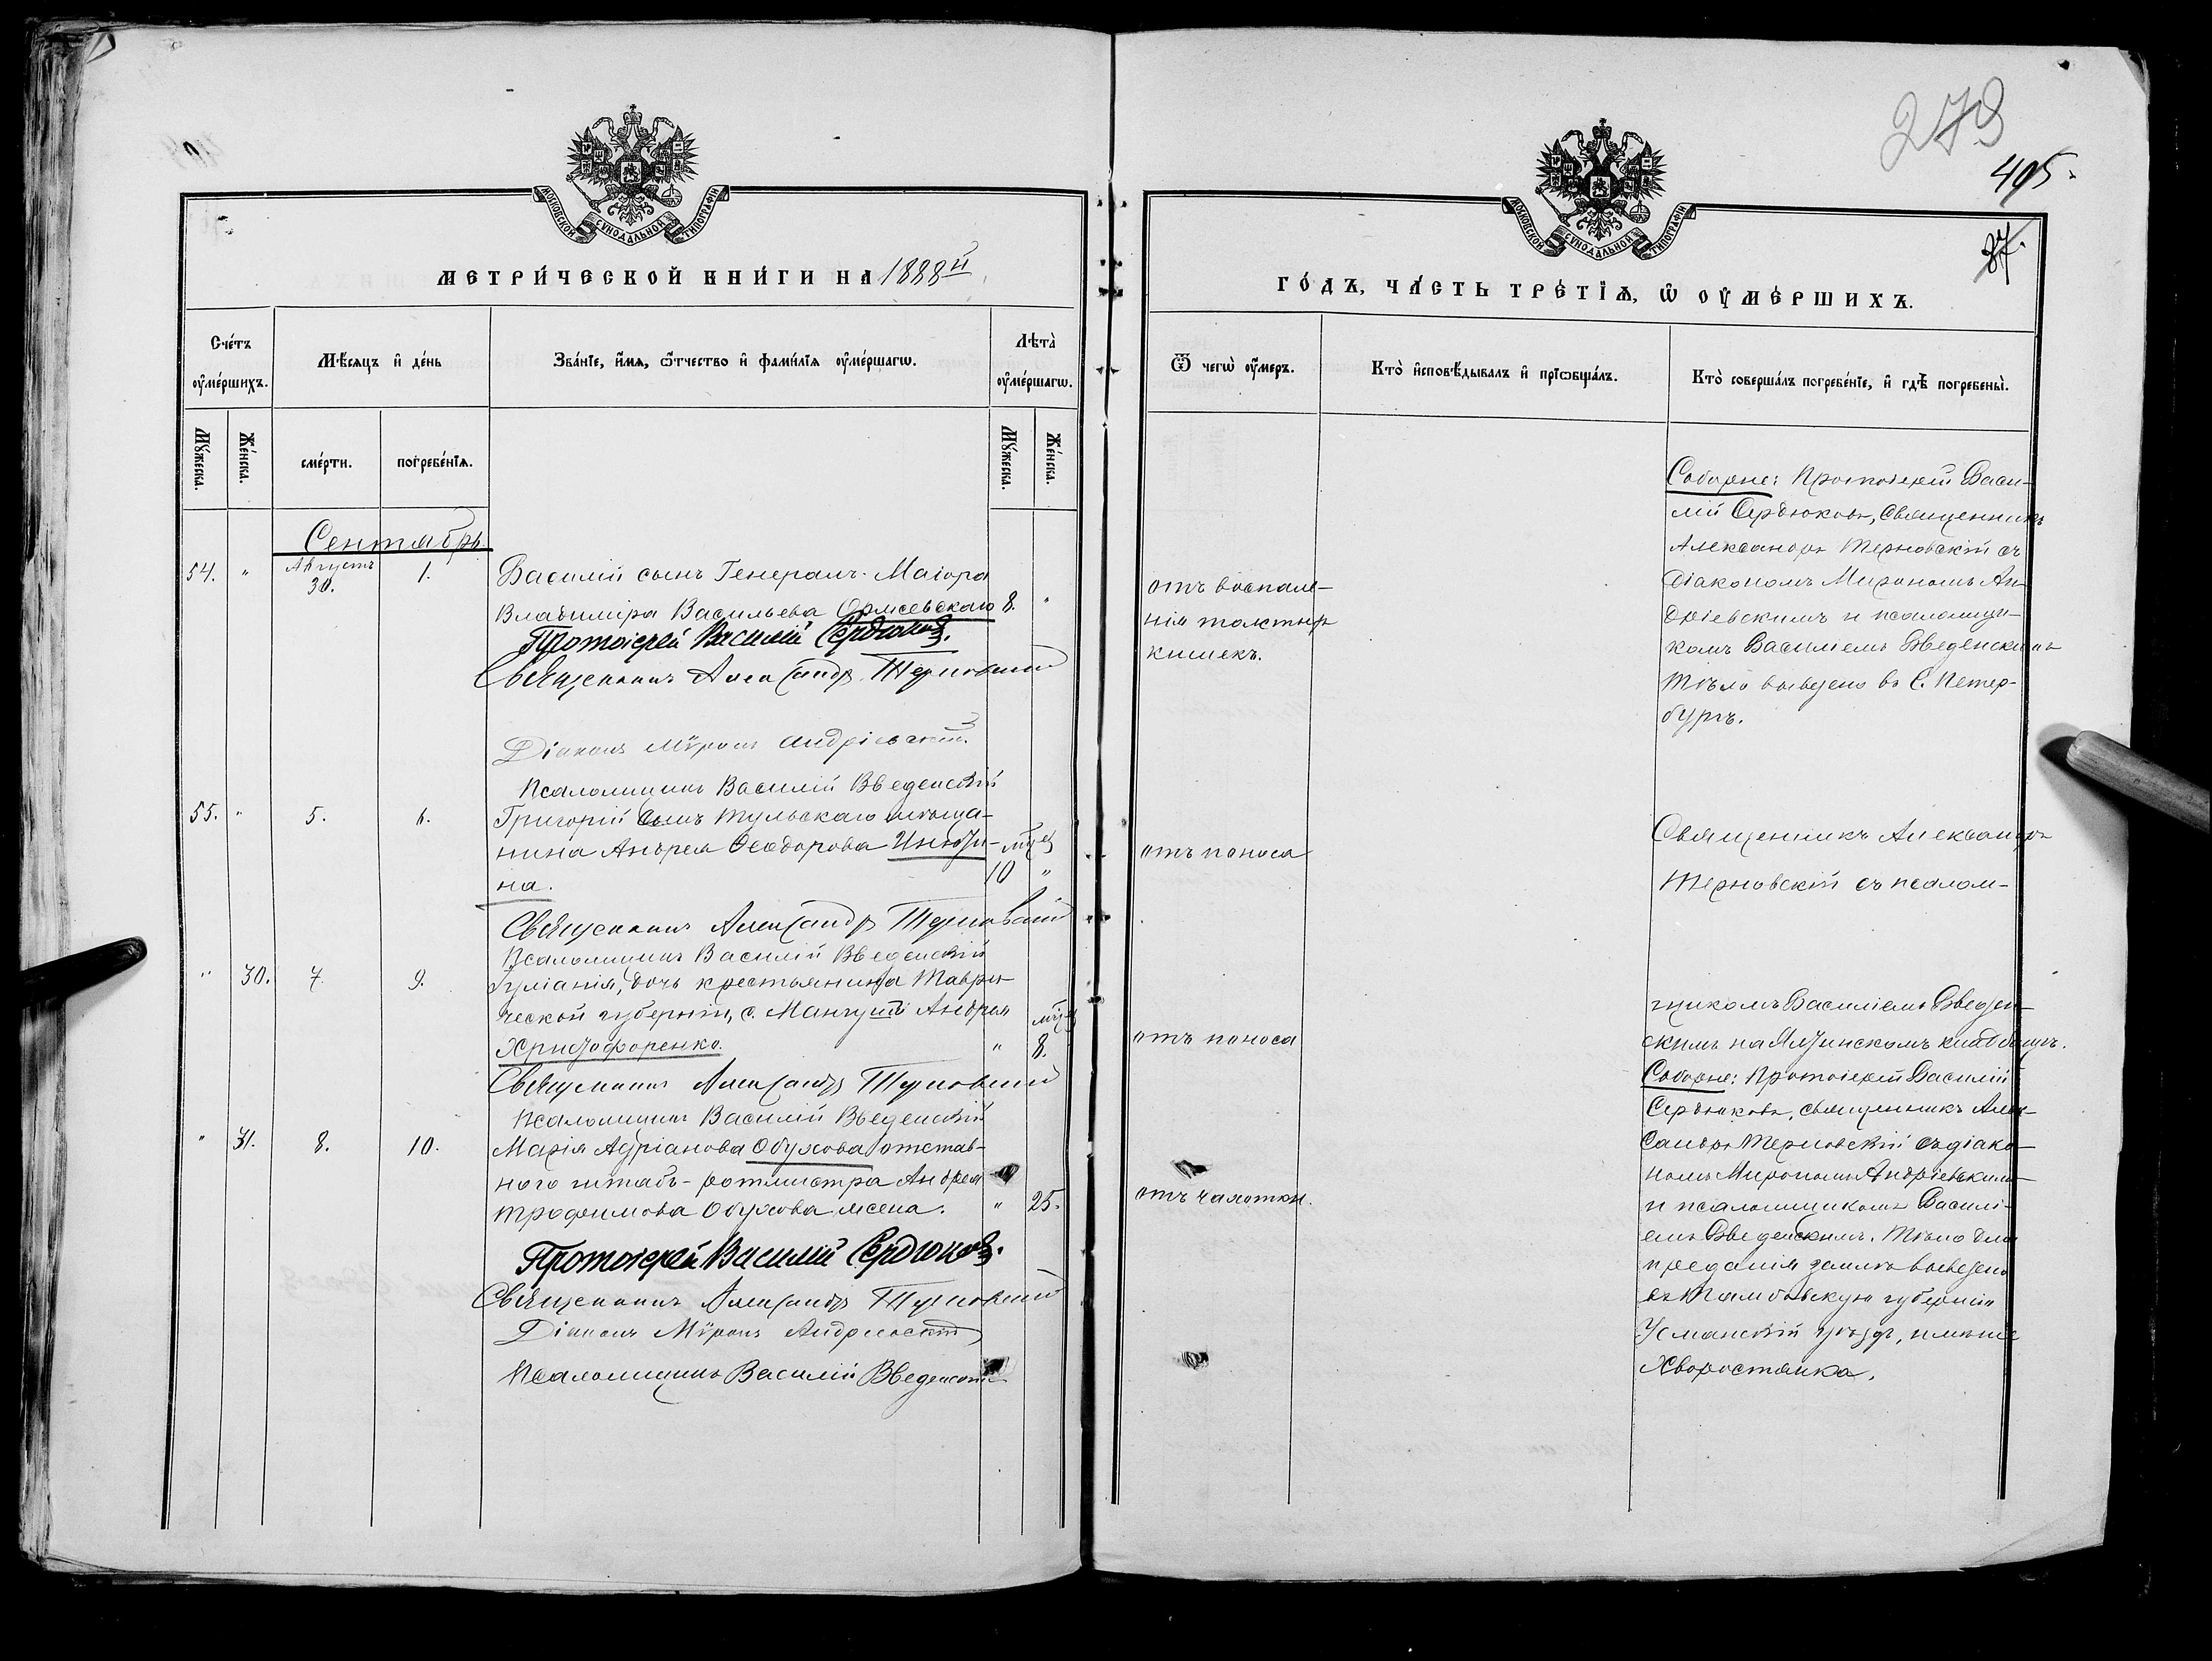 МОСКОВСКОЙ СѴНОДАЛЬНОЙ ТИПОГРАФІИ
МЕТРИ́ЧЕСКОЙ КНИ́ГИ НА 1888й
Сче́тъ ᲂу҆ме́ршихъ.
Мѣ́сяцъ и҆ де́нь
Зва́нїе, и҆́мѧ, ѻ҆́тчество и҆ фами́лїѧ ᲂу҆ме́ршагѡ.
Лѣта̀ ᲂу҆ме́ршагѡ.
Мꙋ́жеска.
Же́нска.
сме́рти.
погребе́нїѧ.
Мꙋ́жеска.
Же́нска.
Сентябрь.
54. " Августъ 30. 1. Василій сынъ Генералъ-Маіора
Владиміра Васильева 8. "
Протоіерей Василій Сердюковъ.
Священникъ Александръ Терновскій
Діаконъ Мѵронъ Андріевскій.
Псаломщикъ Василій Введенскій
55. " 5. 6. Григорій сынъ Тульскаго мѣща-
нина Андрея Ѳеодорова
на. 10 "
Священникъ Александръ Терновскій
Псаломщикъ Василій Введенскій
" 30. 7. 9. Іуліанія, дочь крестьянина Таври-
ческой губерніи, с. Мангушъ Андрея
Христофоренко. " 8.
Священникъ Александръ Терновскій
Псаломщикъ Василій Введенскій
" 31. 8. 10. Марія Адріанова Обухова отстав-
ного штабъ-ротмистра Андрея
Трофимова Обухова жена. " 25.
Протоіерей Василій Сердюковъ.
Священникъ Александръ Терновскій
Діаконъ Мѵронъ Андріевскій
Псаломщикъ Василій Введенскій
279
405.
37.
МОСКОВСКОЙ СѴНОДАЛЬНОЙ ТИПОГРАФІИ
ГО́ДЪ, ЧА́СТЬ ТРЕ́ТЇѦ, Ѡ҆ ОУ҆МЕ́РШИХЪ.
Ѿ чегѡ̀ ᲂу҆́меръ.
Кто̀ и҆сповѣ́дывалъ и҆ прїѡбща́лъ.
Кто̀ соверша́лъ погребе́нїе, и҆ гдѣ̀ погребены̀.
отъ воспале-
нія толстыхъ
кишекъ.
Соборне: Протоіерей Васи-
лій Сердюковъ, Священникъ
Александръ Терновскій съ
діакономъ Мирономъ Ан-
дріевскимъ и псаломщи-
комъ Василіемъ Введенскимъ
Тѣло вывезено въ С. Петер-
бургъ.
отъ поноса
Священникъ Александръ
Терновскій съ псалом-
отъ поноса
щикомъ Василіемъ Введен-
скимъ на Ялтинскомъ кладбищѣ.
отъ чахотки.
Соборне: Протоіерей Василій
Сердюковъ, священникъ Алек-
сандръ Терновскій съ діако-
номъ Мирономъ Андріевскимъ
и псаломщикомъ Василі-
емъ Введенскимъ. Тѣло для
преданія землѣ вывезено
въ Тамбовскую губернію
Усманскій уѣздъ, имѣніе
Хворостянка.